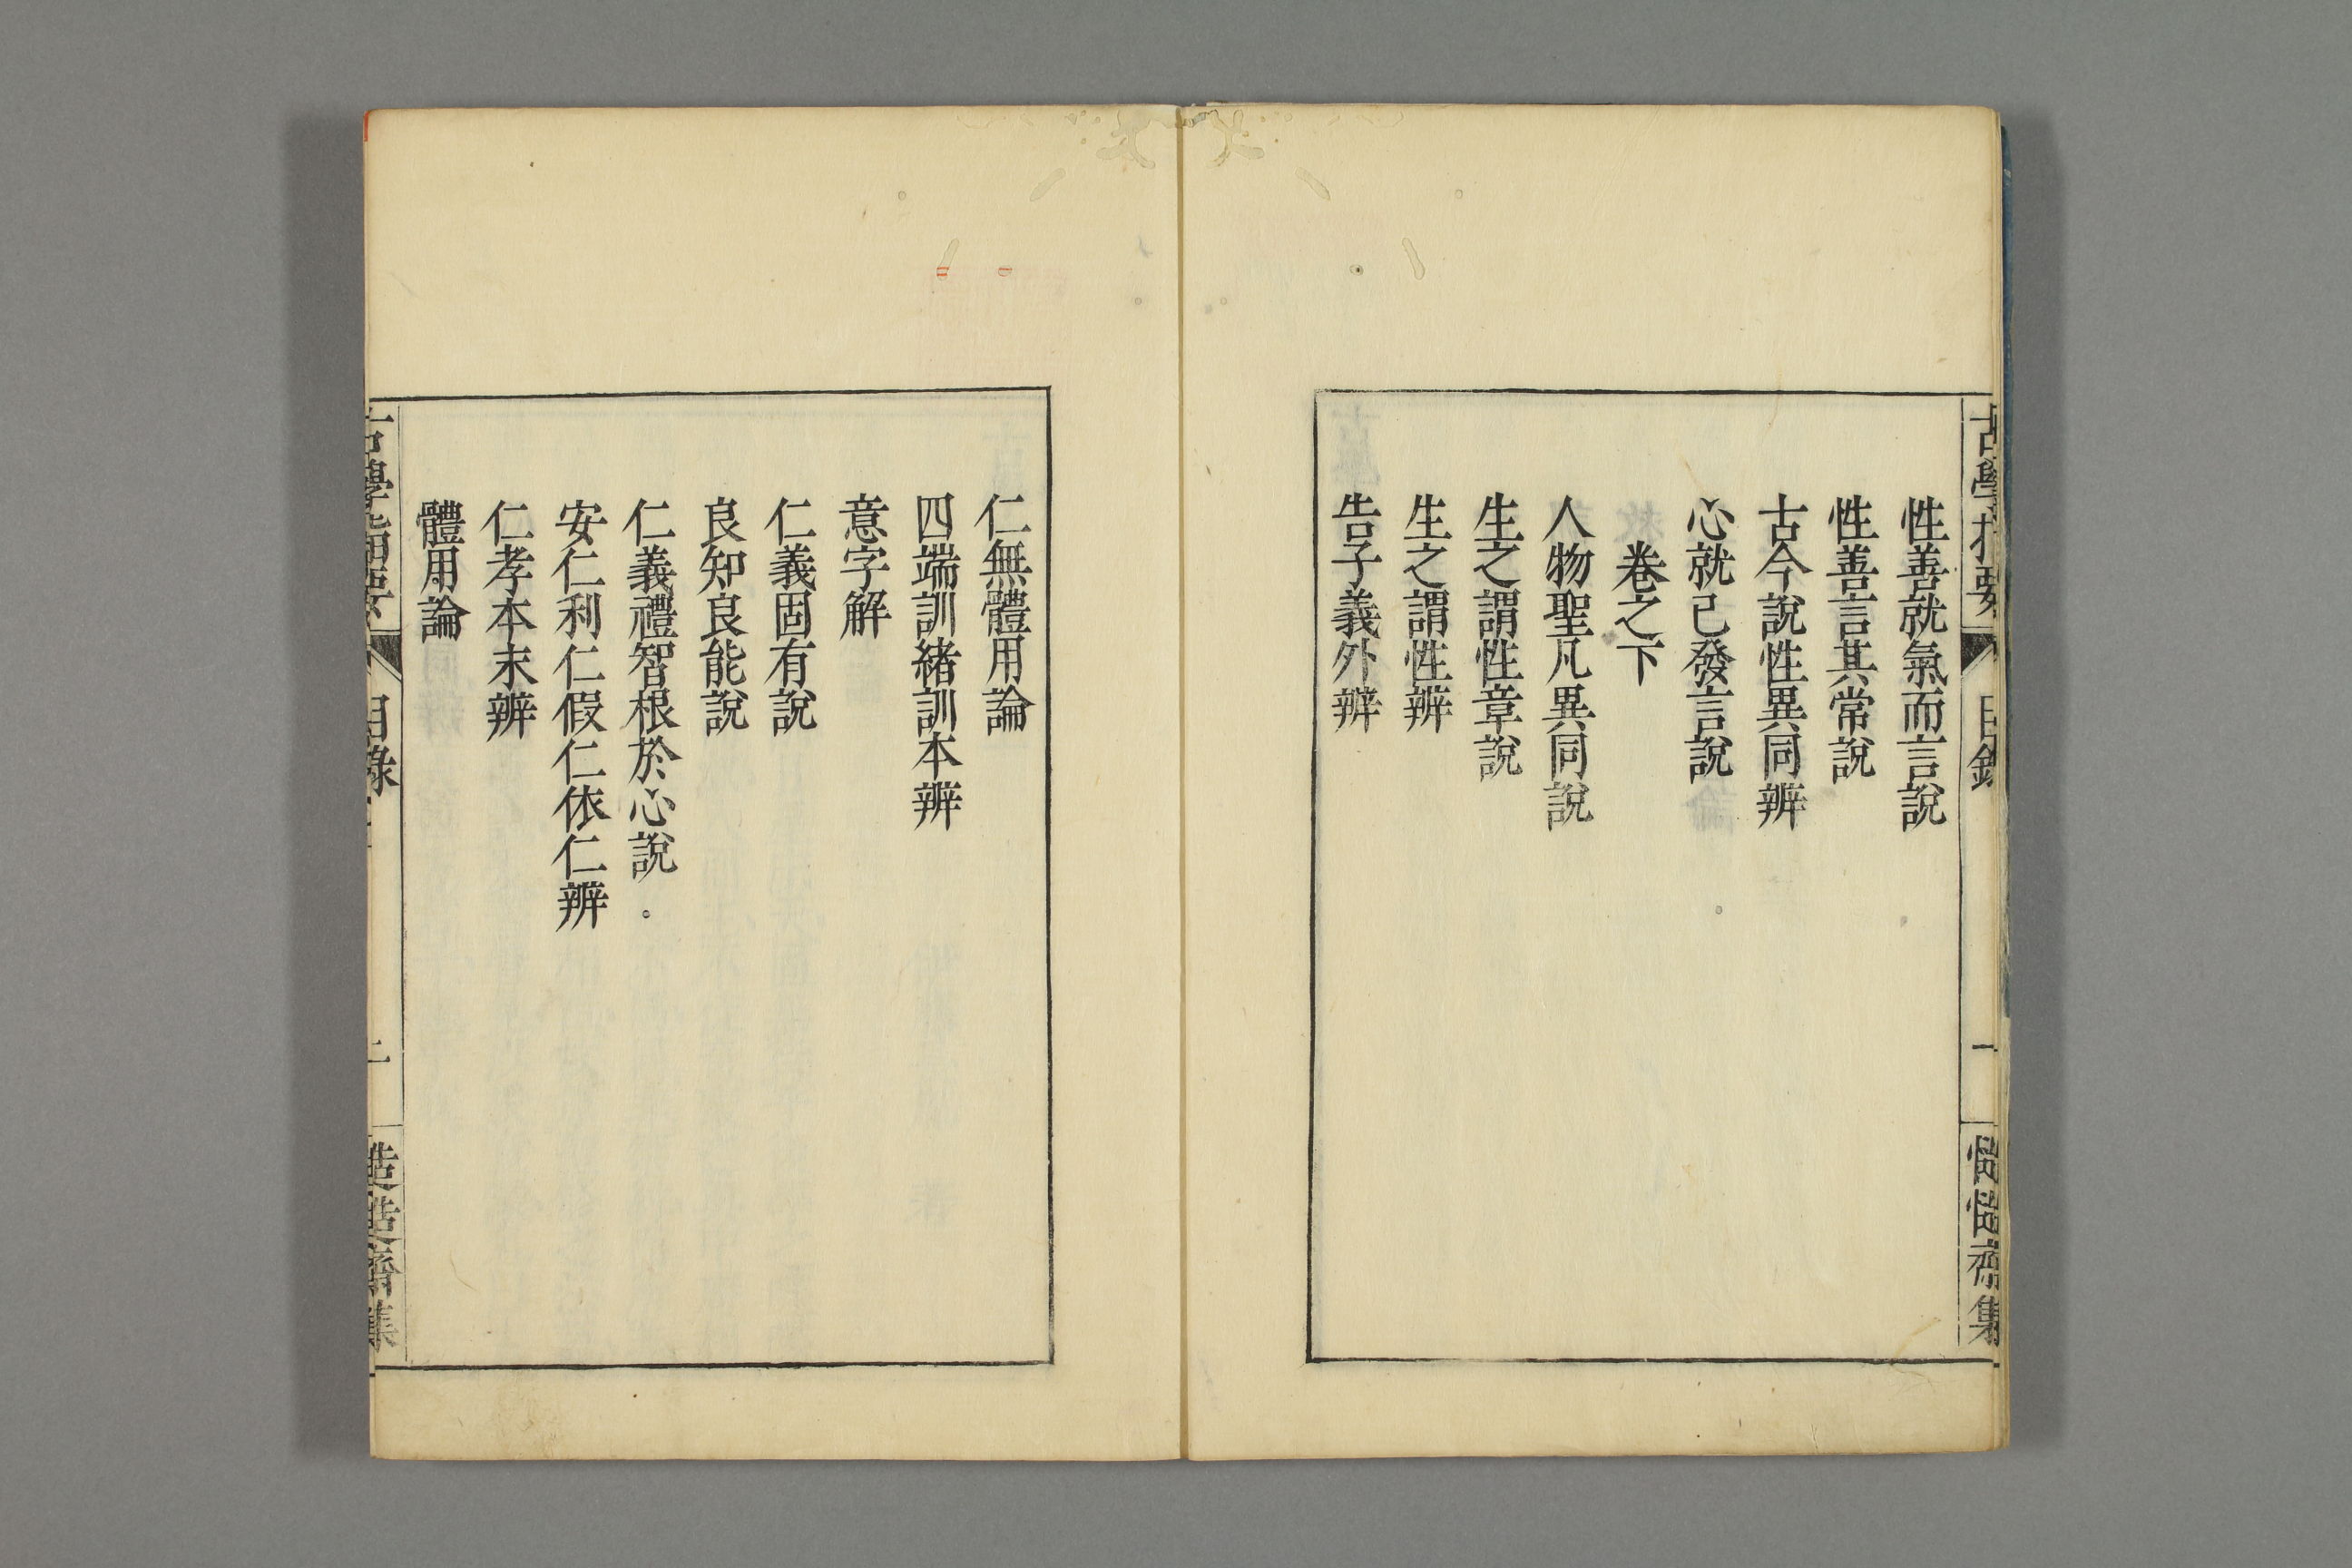 性善就氣而言說
性善言其常說
古今說性異同辨
心就已發言說
卷之下
人物聖凡異同說
生之謂性章說
生之謂性辨
告子義外辨
仁無體用論
四端訓緒訓本辨
意字解
仁義固有說
良知良能說
仁義禮智根於心說
安仁利仁假仁依仁辨
仁孝本末辨
體用論
古學指要
目錄